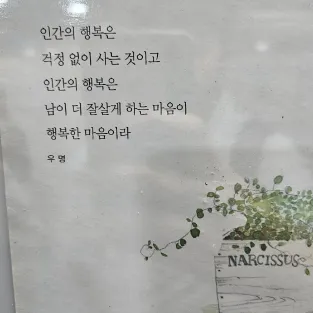 인간의 행복은
걱정 없이 사는 것이고
인간의 행복은
남이 더 잘살게 하는 마음이
행복한 마음이라
우 명
NARCISSUS